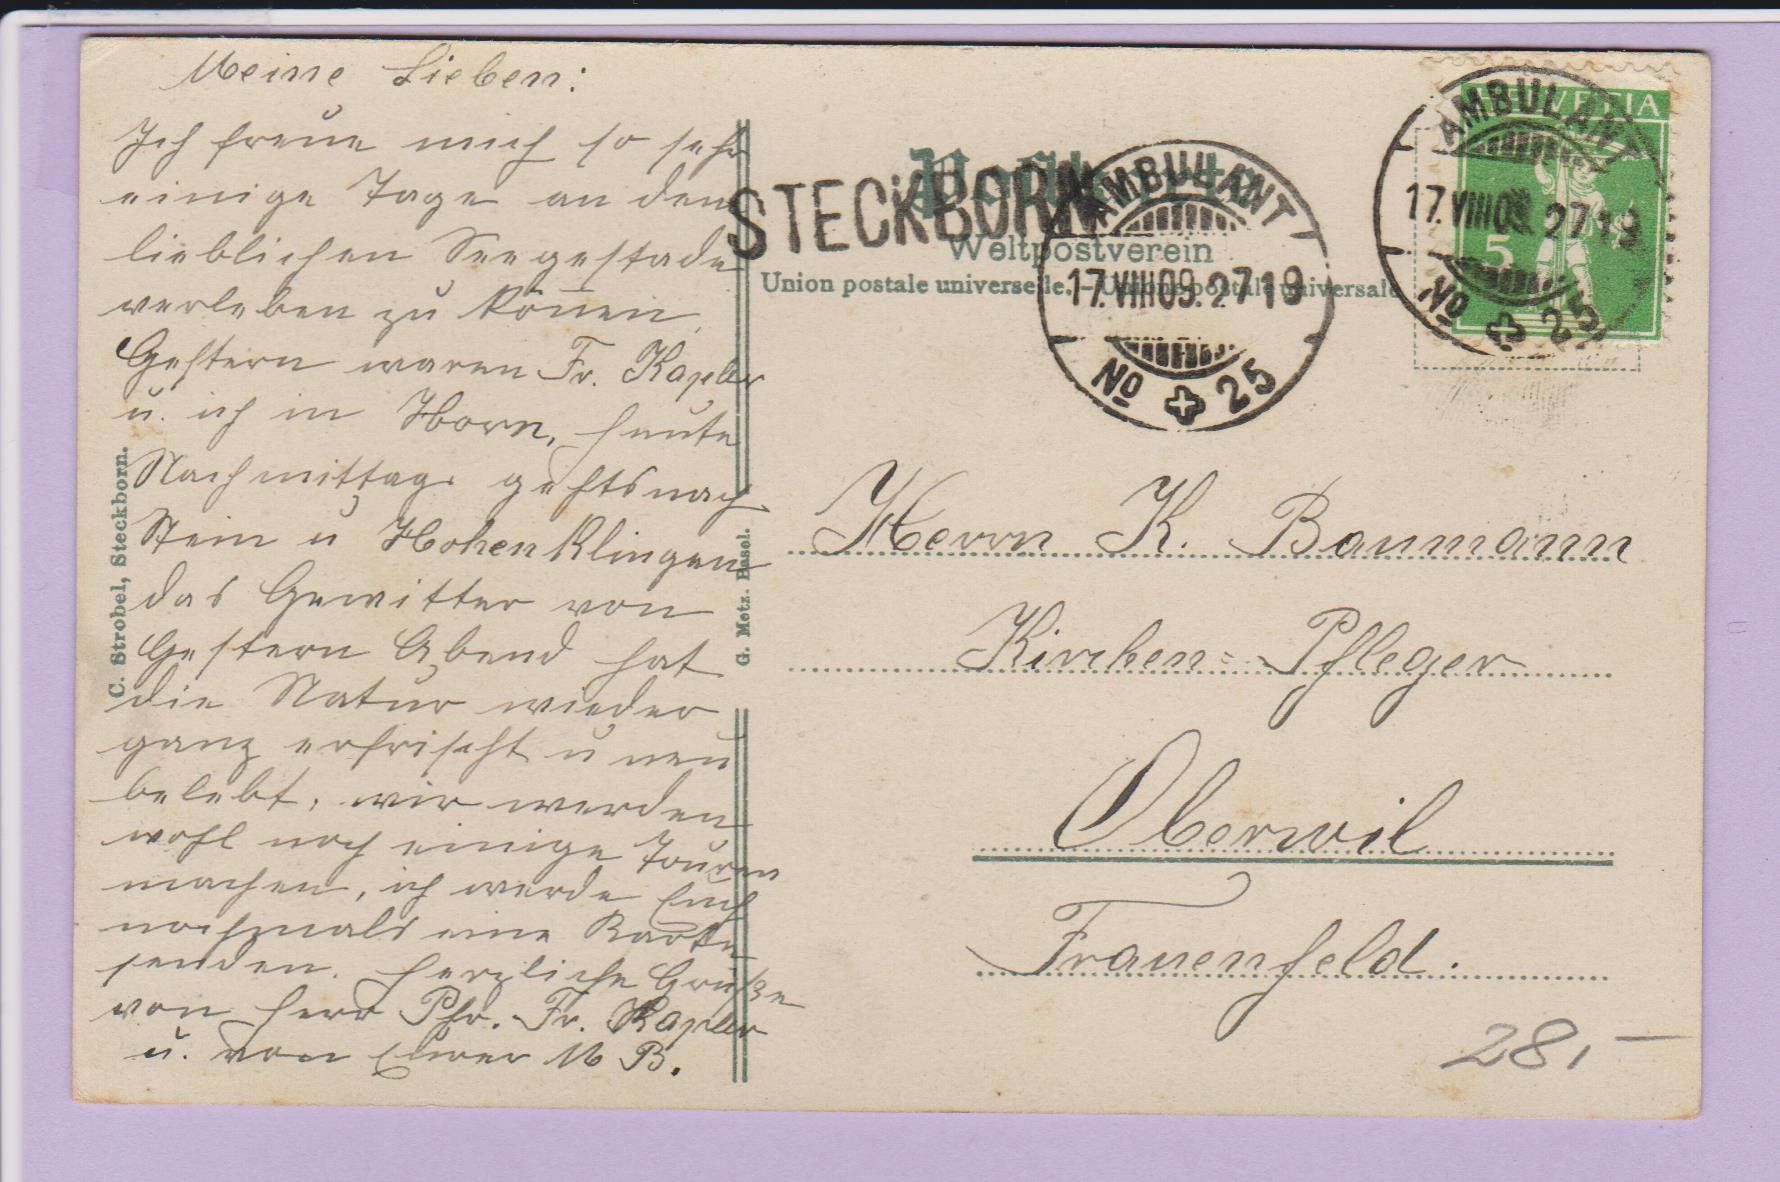 Meine Lieben:
Ich freue mich so sehr
einige Tage an dem
lieblichen Seegestade
verleben zu können,
Gestern waren Fr. Kapler
u. ich in Horn, heute
Nachmittag gehts nach
Stein u Hohenklingen
das Gewitter von
Gestern Abend hat
die Natur wieder
ganz erfrischt u neu
belebt, wir werden
wohl noch einige Touren
machen, ich werde Euch
nochmals eine Karte
senden. Herzliche Grüße
von Herr Pfr. Fr. Kapler
u. von Eurer M B.
C. Strobel, Steckborn.
G. Metz. Basel.
STECKBORN
Weltpostverein
Union postale universelle. – Unione postale universale
AMBULANT
17.VIII09. 2719
No 25
HELVETIA
5
AMBULANT
17.VIII09. 2719
No 25
Herrn K. Baumann
Kirchen-Pfleger
Oberwil
Frauenfeld.
28,-